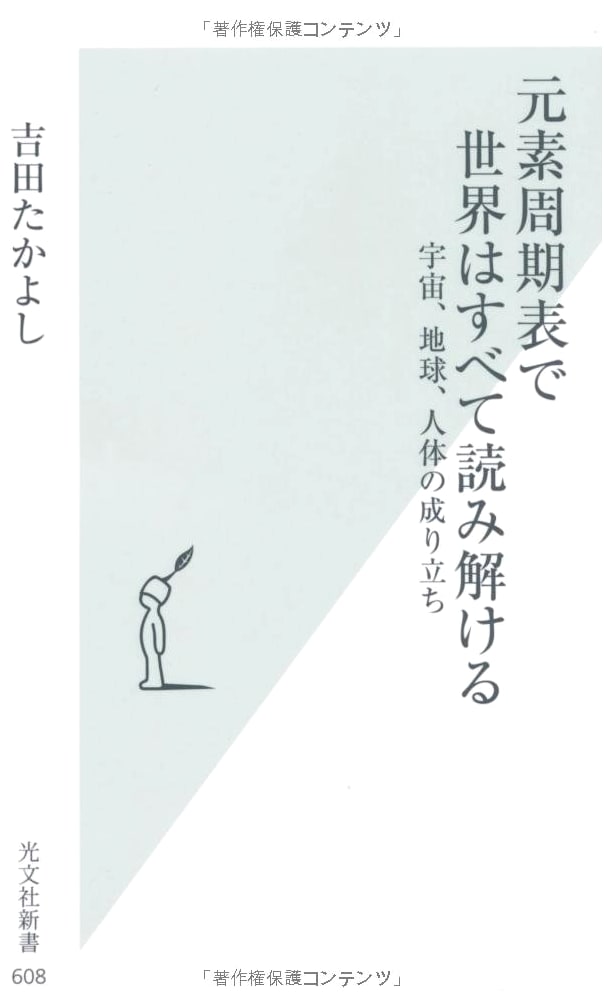 「著作権保護コンテンツ」
元素周期表で
世界はすべて読み解ける
宇宙、地球、人体の成り立ち
吉田たかよし
光文社新書
608
「著作権保護コンテンツ」